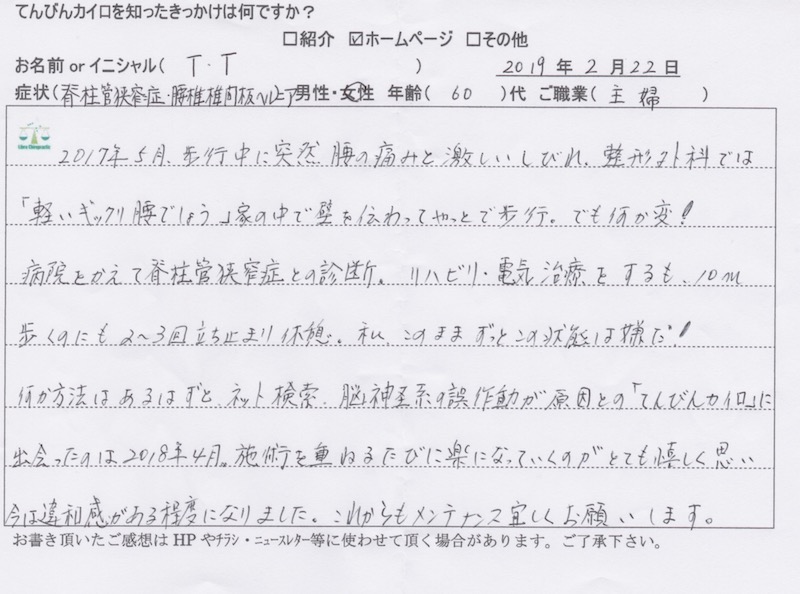 てんびんカイロを知ったきっかけは何ですか?
□紹介 ☑ホームページ □その他
お名前 or イニシャル( T.T ) 2019 年 2 月 22 日
症状(脊柱管狭窄症・腰椎椎間板ヘルニア 男性・女性 年齢( 60 )代 ご職業( 主婦 )
2017年5月、歩行中に突然腰の痛みと激しいしびれ、整形外科では
「軽いギックリ腰でしょう」家の中で壁を伝わってやっとで歩行。でも何か変!
病院をかえて脊柱管狭窄症との診断。リハビリ・電気治療をするも、10m
歩くのにも2〜3回立ち止まり休憩。私、このままずっとこの状態は嫌だ!
何か方法はあるはずと、ネット検索、脳神経系の誤作動が原因との「てんびんカイロ」に
出会ったのは2018年4月。施術を重ねるたびに楽になっていくのがとても嬉しく思い
今は違和感がある程度になりました。これからもメンテナンス宜しくお願いします。
お書き頂いたご感想は HP やチラシ・ニュースレター等に使わせて頂く場合があります。ご了承下さい。